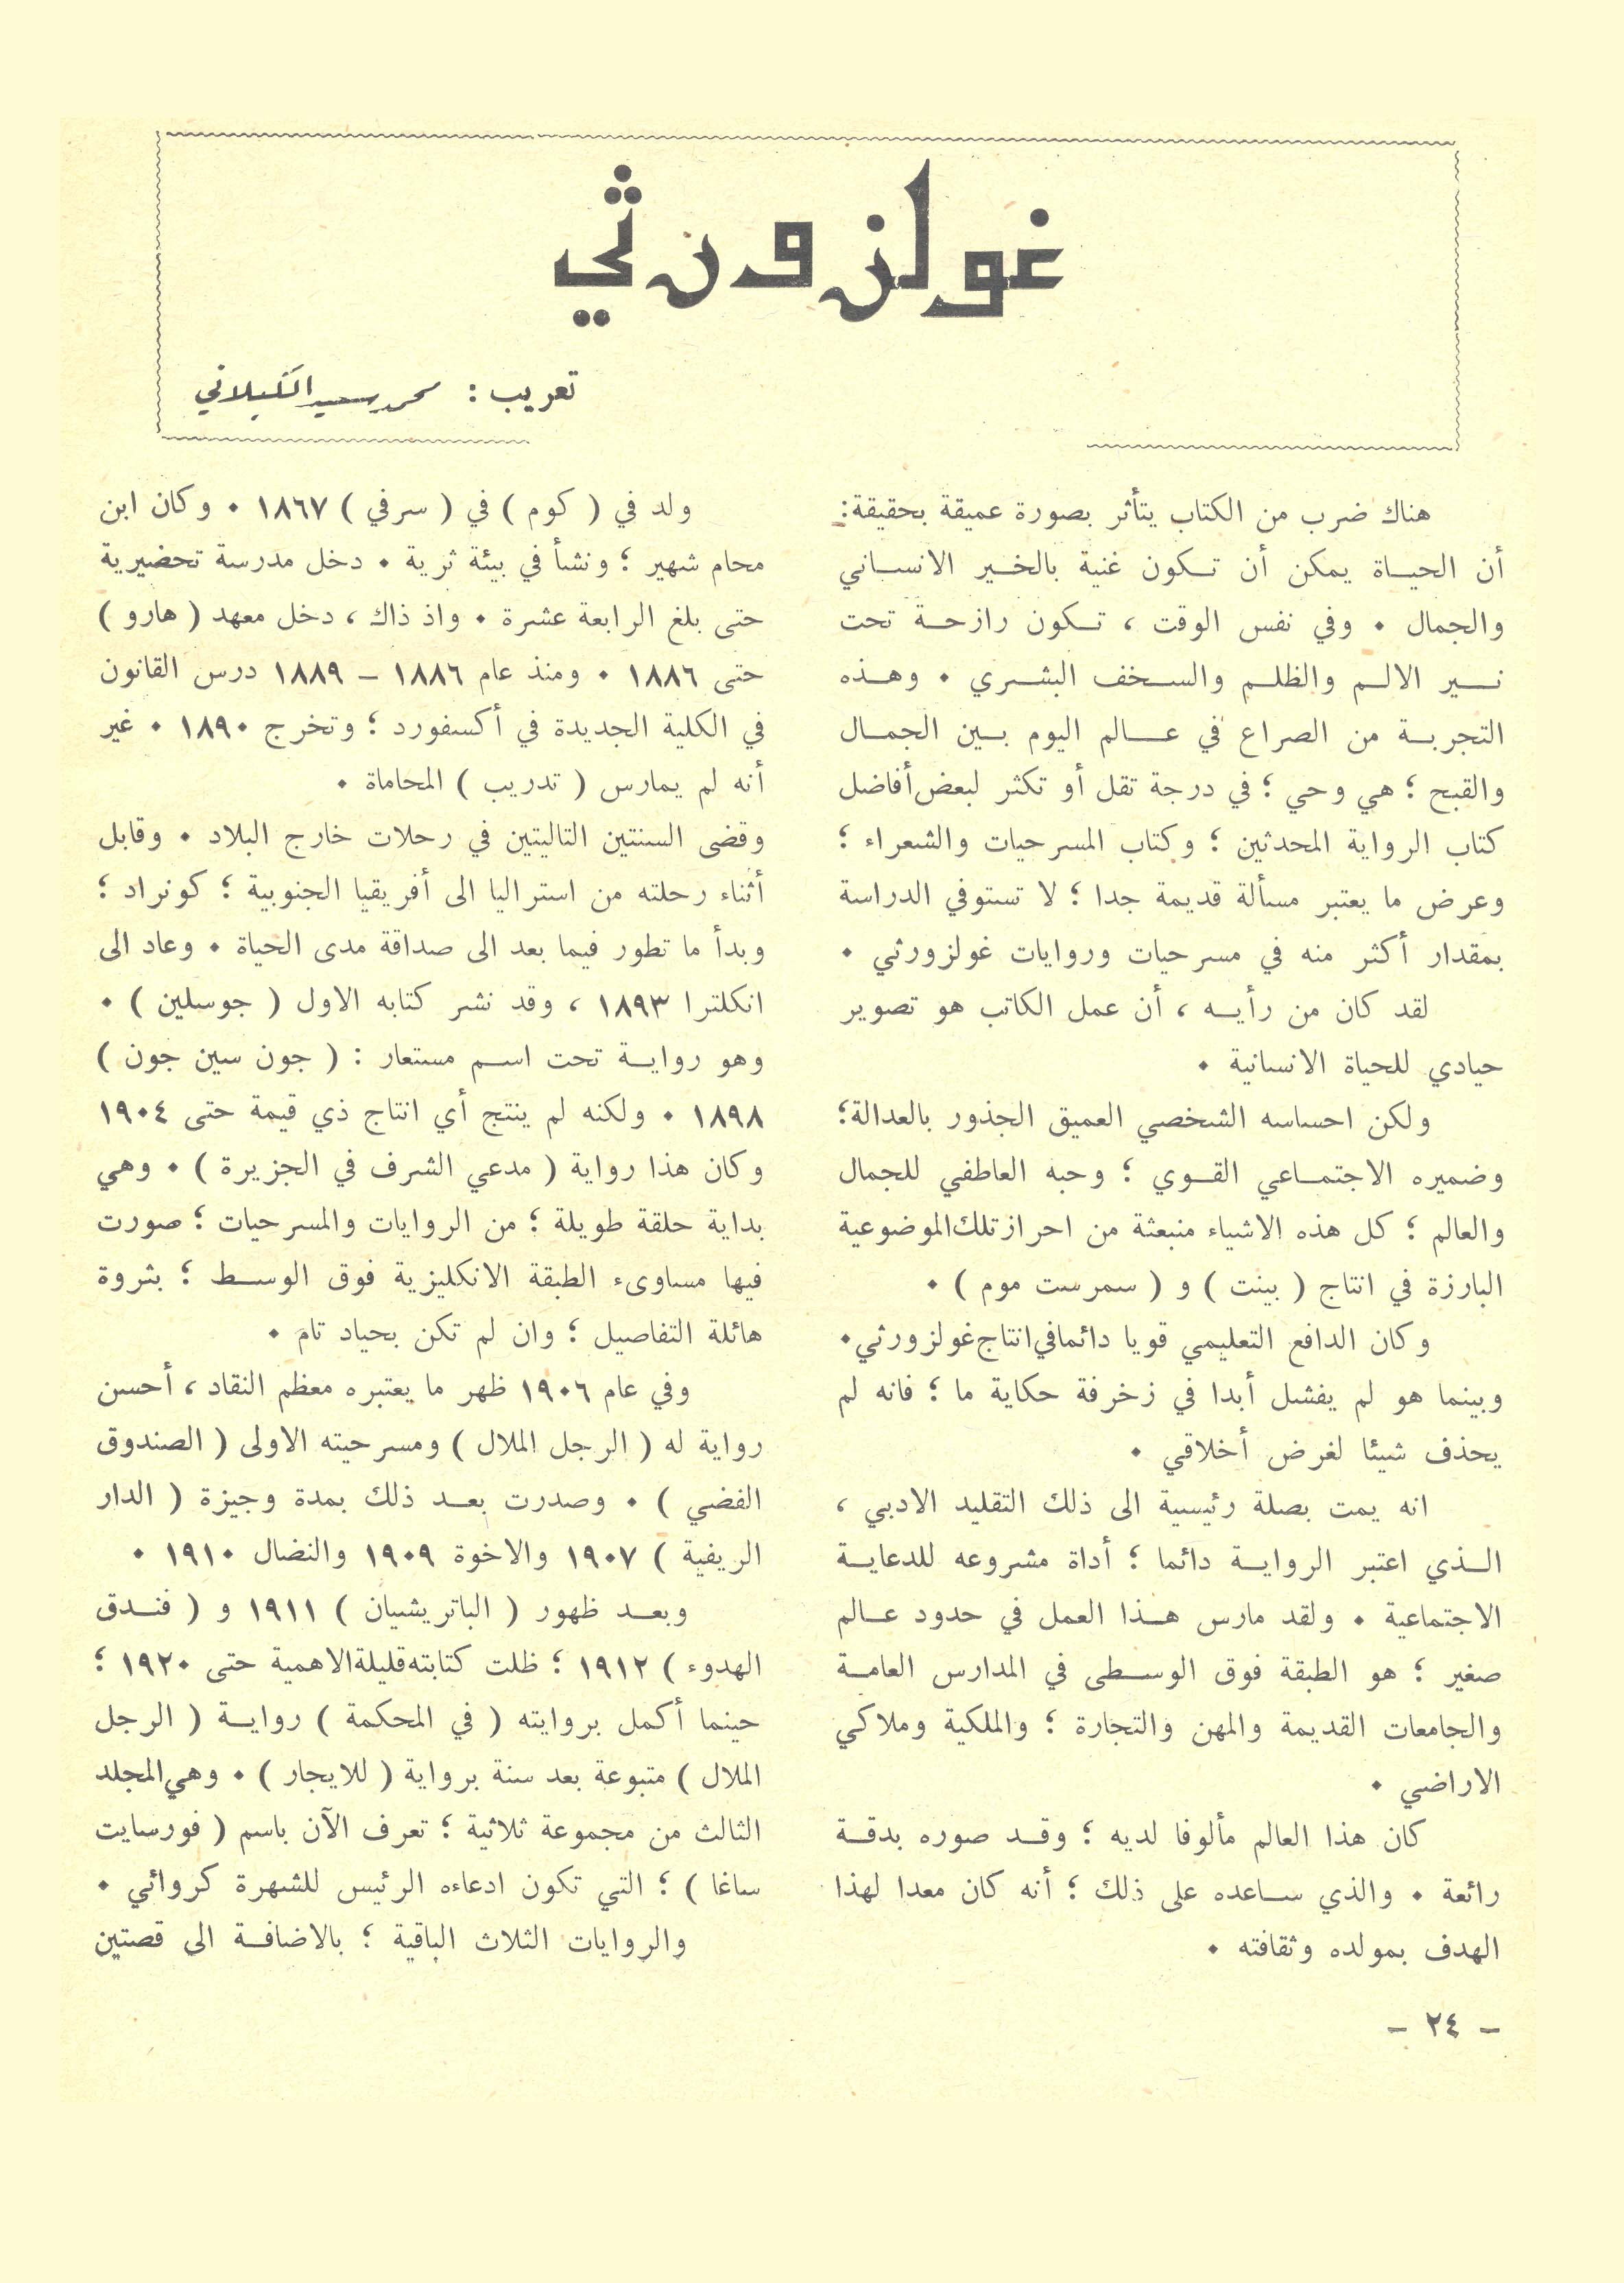 غولزورثي
تعريب : محمد سعيد الكيلاني
هناك ضرب من الكتاب يتأثر بصورة عميقة بحقيقة:
أن الحياة يمكن أن تكون غنية بالخير الانساني
والجمال . وفي نفس الوقت ، تكون رازحة تحت
نير الالم والظلم والسخف البشري . وهذه
التجربة من الصراع في عالم اليوم بين الجمال
والقبح ؛ هي وحي ؛ في درجة تقل أو تكثر لبعض أفاضل
كتاب الرواية المحدثين ؛ وكتاب المسرحيات والشعراء ؛
وعرض ما يعتبر مسألة قديمة جدا ؛ لا تستوفي الدراسة
بمقدار أكثر منه في مسرحيات وروايات غولزورثي .
لقد كان من رأيه ، أن عمل الكاتب هو تصوير
حيادي للحياة الانسانية .
ولكن احساسه الشخصي العميق الجذور بالعدالة؛
وضميره الاجتماعي القوي ؛ وحبه العاطفي للجمال
والعالم ؛ كل هذه الاشياء منبعثة من احراز تلك الموضوعية
البارزة في انتاج ( بينت ) و ( سمرست موم ) .
وكان الدافع التعليمي قويا دائما في انتاج غولزورثي .
وبينما هو لم يفشل أبدا في زخرفة حكاية ما ؛ فانه لم
يحذف شيئا لغرض أخلاقي .
انه يمت بصلة رئيسية الى ذلك التقليد الادبي ،
الذي اعتبر الرواية دائما ؛ أداة مشروعه للدعاية
الاجتماعية . ولقد مارس هذا العمل في حدود عالم
صغير ؛ هو الطبقة فوق الوسطى في المدارس العامة
والجامعات القديمة والمهن والتجارة ؛ والملكية وملاكي
الاراضي .
كان هذا العالم مألوفا لديه ؛ وقد صوره بدقة
رائعة . والذي ساعده على ذلك ؛ أنه كان معدا لهذا
الهدف بمولده وثقافته .
ولد في ( كوم ) في ( سرفي ) ١٨٦٧ . وكان ابن
محام شهير ؛ ونشأ في بيئة ثرية . دخل مدرسة تحضيرية
حتى بلغ الرابعة عشرة . واذ ذاك ، دخل معهد ( هارو )
حتى ١٨٨٦ . ومنذ عام ١٨٨٦ - ١٨٨٩ درس القانون
في الكلية الجديدة في أكسفورد ؛ وتخرج ١٨٩٠ . غير
أنه لم يمارس ( تدريب ) المحاماة .
وقضى السنتين التاليتين في رحلات خارج البلاد . وقابل
أثناء رحلته من استراليا الى أفريقيا الجنوبية ؛ كونراد ؛
وبدأ ما تطور فيما بعد الى صداقة مدى الحياة . وعاد الى
انكلترا ١٨٩٣ ، وقد نشر كتابه الاول ( جوسلين ) .
وهو رواية تحت اسم مستعار : ( جون سين جون )
١٨٩٨ . ولكنه لم ينتج أي انتاج ذي قيمة حتى ١٩٠٤
وكان هذا رواية ( مدعي الشرف في الجزيرة ) . وهي
بداية حلقة طويلة ؛ من الروايات والمسرحيات ؛ صورت
فيها مساوىء الطبقة الانكليزية فوق الوسط ؛ بثروة
هائلة التفاصيل ؛ وان لم تكن بحياد تام .
وفي عام ١٩٠٦ ظهر ما يعتبره معظم النقاد ، أحسن
رواية له ( الرجل الملال ) ومسرحيته الاولى ( الصندوق
الفضي ) . وصدرت بعد ذلك بمدة وجيزة ( الدار
الريفية ) ١٩٠٧ والاخوة ١٩٠٩ والنضال ١٩١٠ .
وبعد ظهور ( الباتريشيان ) ١٩١١ و ( فندق
الهدوء ) ١٩١٢ ؛ ظلت كتابته قليلة الاهمية حتى ١٩٢٠ ؛
حينما أكمل بروايته ( في المحكمة ) رواية ( الرجل
الملال ) متبوعة بعد سنة برواية ( للايجار ) . وهي المجلد
الثالث من مجموعة ثلاثية ؛ تعرف الآن باسم ( فورسايت
ساغا ) ؛ التي تكون ادعاءه الرئيس للشهرة كروائي .
والروايات الثلاث الباقية ؛ بالاضافة الى قصتين
- ٢٤ -